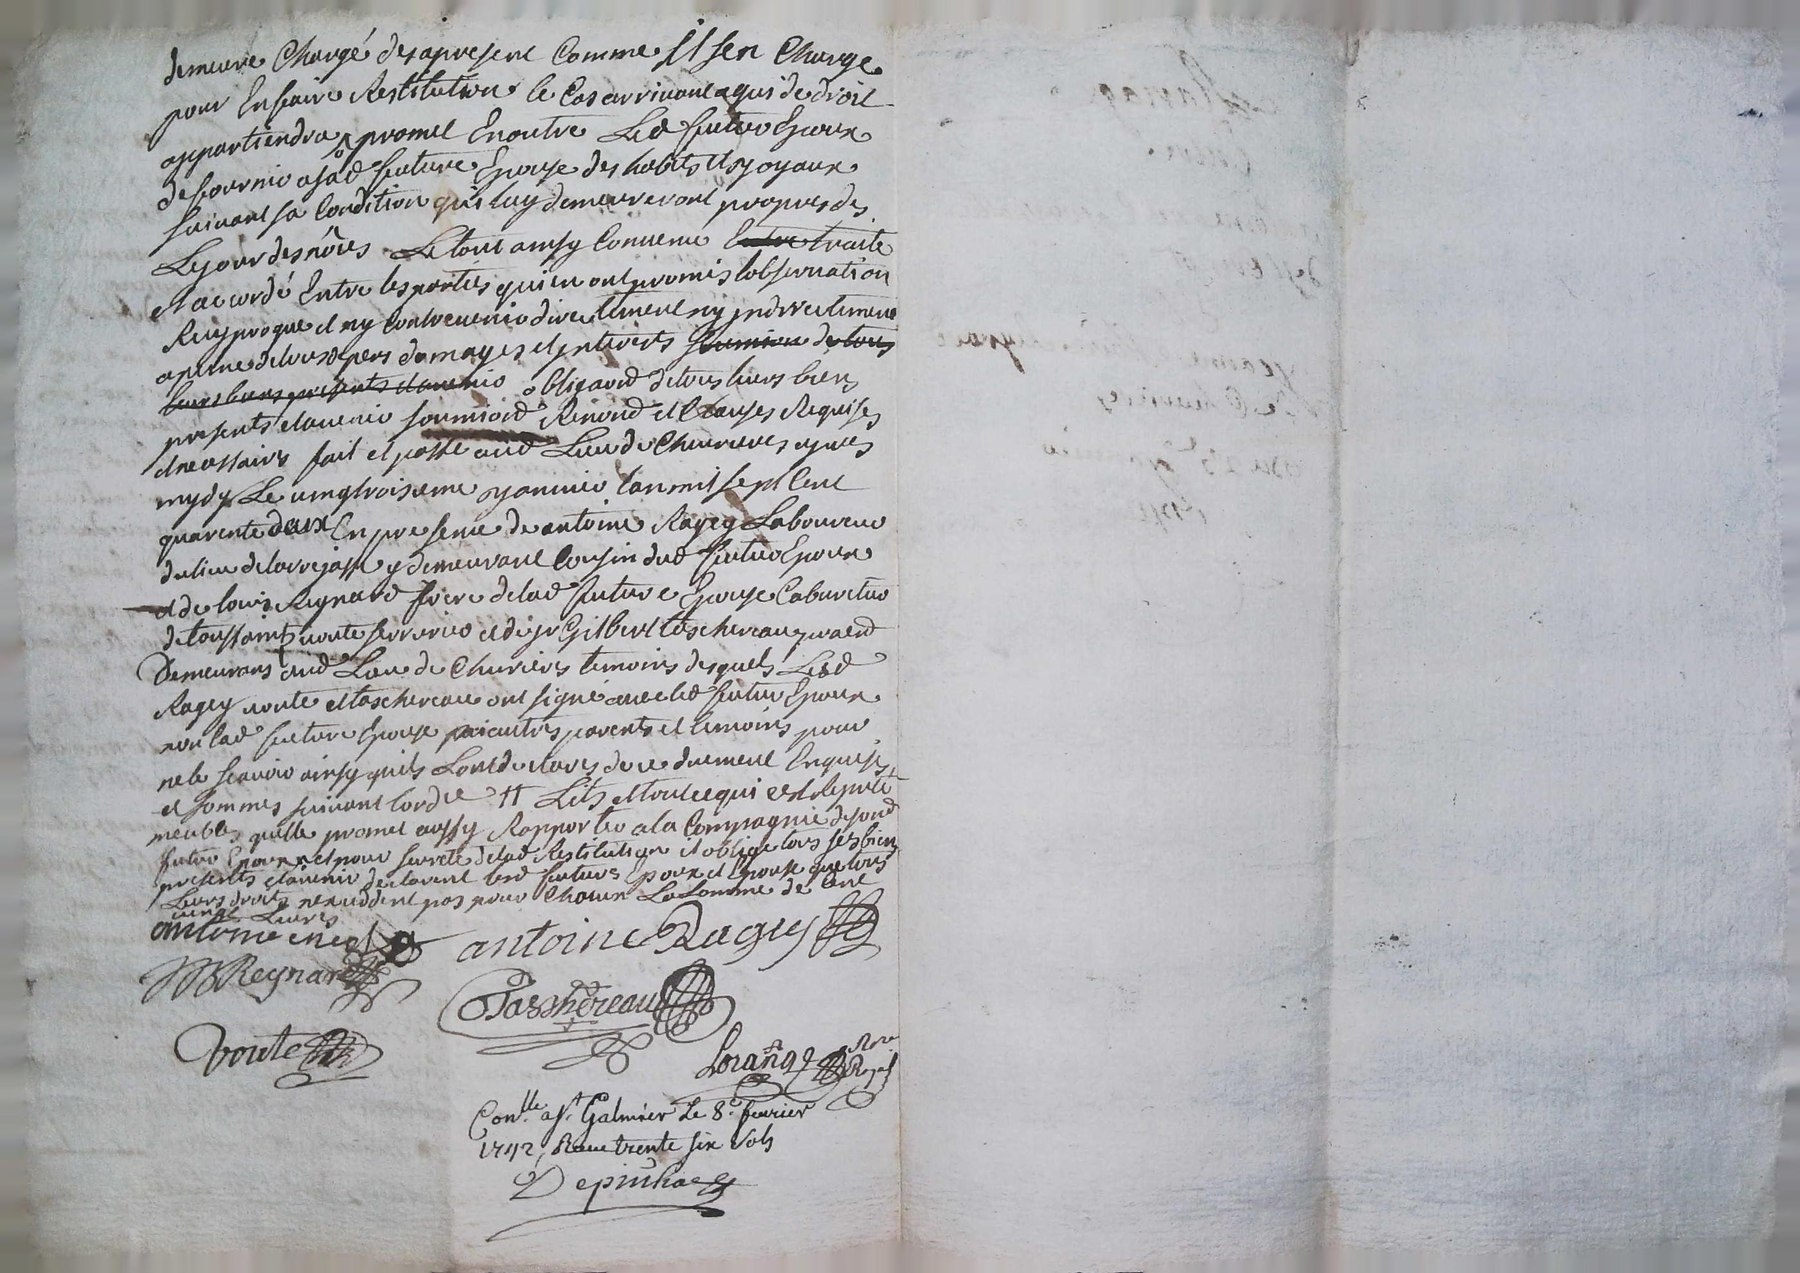 demeure Chargé des apresent Comme Il sen Charge
pour En faire Restitution le Cas arrivant a qui de droit
appartiendra promet En outre Led futur Epoux
de fournir a sad future Epouse des habits et joyaux
suivant sa Condition qui luy demeureront propres des
Le jour des nôces Le tout ainsy Convenu Entre traité
et accordé Entre les parties qui en ont promis lobservation
Reciproque et ny Contrevenir directement ny indirectement
a peine de tous depens domages et interests soumission de tous
leurs biens presents et avenir obligaôd de tous leurs biens
presents et avenir soumioid Renond et Clauses Requises
et necessaires fait et passé aud Lieu de Chevrieres apres
mydy Le vingtroisieme janvier lan mil sept Cent
quarente deux En presence de antoine Ragey Laboureur
du lieu de y demeurant Cousin dud futur Epoux
et de louis Reynard frere de lad future Epouse Cabaretier
de toussaint voute serrurier et de sr Gilbert taschereau
Demeurans aud Lieu de Chevrieres temoins desquels Lesd
Ragey voute et taschereau ont signé avec led futur Epoux
non lad future Epouse ni autres parents et temoins pour
ne le scavoir ainsy quils Lont declarés de ce duement Enquis
et sommes suivant lordce Lits et tout ce qui est Reputé
meubles quelle promet aussy Rapporter a la Compagnie de sond
futur Epoux et pour sureté de lad Restitution il oblige tous ses biens
presents et avenir declarent lesd futurs Epoux et Epouse que tous
Leurs droits nexceddent pas pour Chacun La Somme de Cent
cinqt Livres
antoine antoine Ragey
Reynard
Taschereau
voute
Lorange Nore Royal
Conlle a St Galmier Le 8e fevrier
1742, Receu trente six Sols
Depinhac